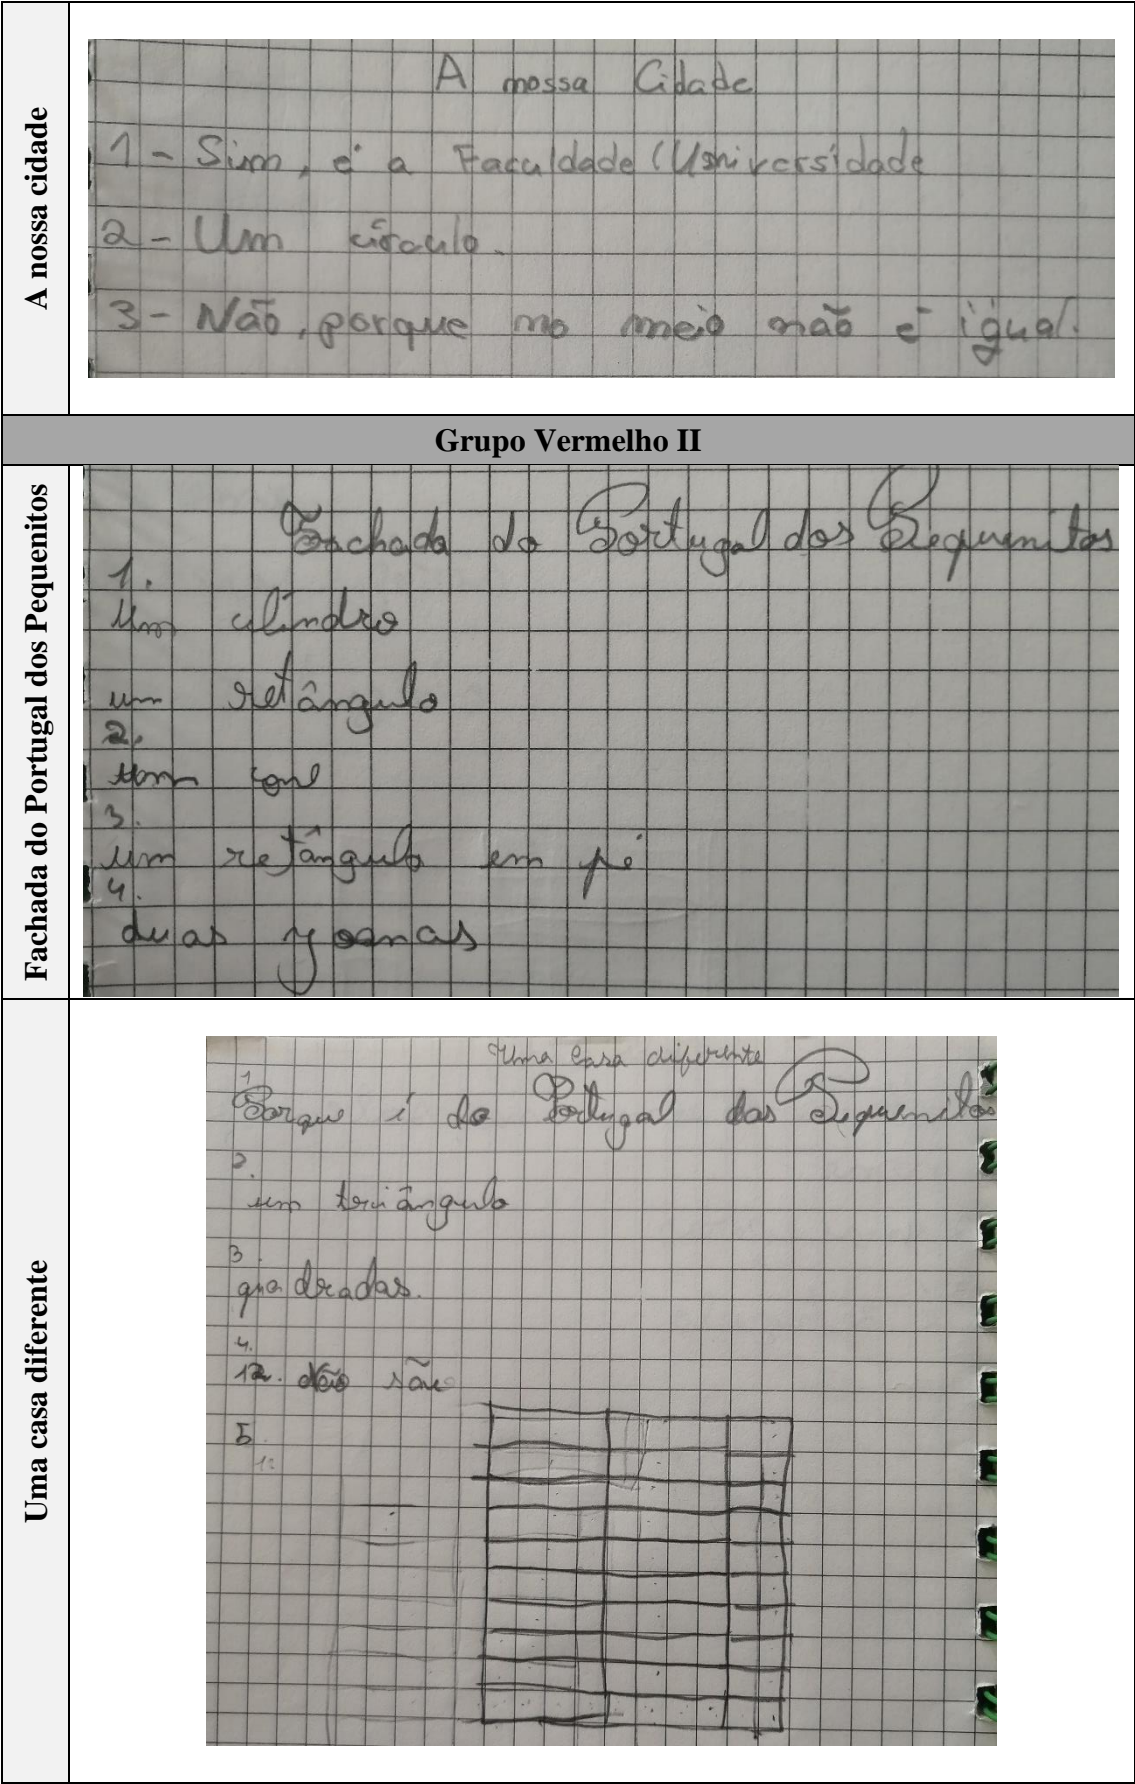 A nossa cidade
A nossa Cidade
1 - Sim, é a Faculdade (Universidade
2 - Um círculo.
3 - Não, porque no meio não é igual.
Grupo Vermelho II
Fachada do Portugal dos Pequenitos
Fachada do Portugal dos Pequenitos
1.
Um cilindro
um retângulo
2.
Um cone
3.
um retângulo em pé
4.
duas
Uma casa diferente
Uma casa diferente
1
Porque é do Portugal dos Pequenitos
2.
um triângulo
3.
quadradas.
4.
12. Não são
5.